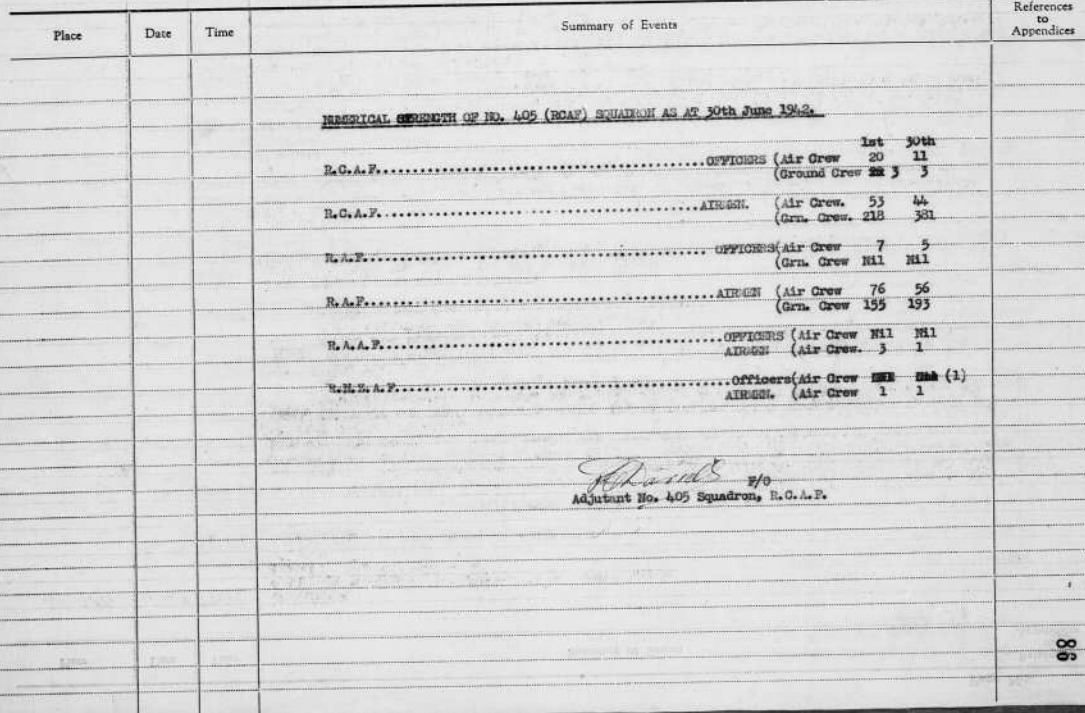 Place Date Time Summary of Events References to Appendices
NUMERICAL STRENGTH OF NO. 405 (RCAF) SQUADRON AS AT 30th June 1942.
1st 30th
R.C.A.F. OFFICERS (Air Crew 20 11
(Ground Crew 3 3
R.C.A.F. AIRMEN. (Air Crew. 53 44
(Grn. Crew. 218 381
R.A.F. OFFICERS(Air Crew 7 5
(Grn. Crew Nil Nil
R.A.F. AIRMEN (Air Crew 76 56
(Grn. Crew 155 193
R.A.A.F. OFFICERS (Air Crew Nil Nil
AIRMEN (Air Crew. 3 1
R.N.Z.A.F. Officers(Air Crew (1)
AIRMEN. (Air Crew 1 1
F/O
Adjutant No. 405 Squadron, R.C.A.F.
86